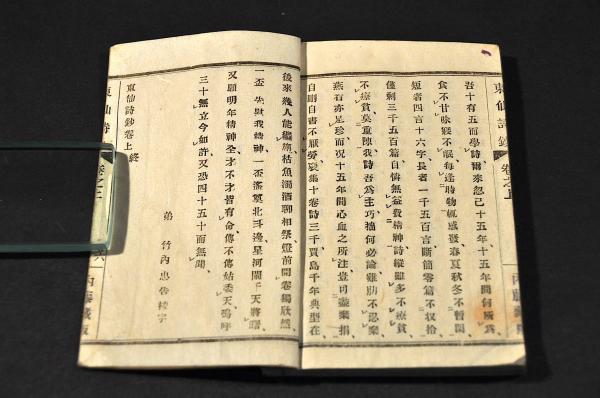 東仙詩鈔 卷之上
吾十有五而學詩爾來忽已十五年、十五年間何所爲
食不甘味寢不眠每逢時物輒感發春夏秋冬不暫閒
短者四言十六字長者一千五百言斷簡零篇不收拾
僅剩三千五百篇自憐無益費精神詩縱雖多不療貧
不療貧莫重陳我吾爲主巧拙何必論雞肋不忍棄
燕石亦足珍而況十五年間心血之所注豈可無棄捐
自刪自書不厭勞裒集十卷詩三千賈島千年典型在
後來幾人能繼旃枯魚濁酒聊相祭燈前開卷獨欣然
一盃先慰我精神一盃遙奠北斗邊星河闌天將曙
又願明年精神全才不才皆有命傳不傳姑委天嗚呼
三十無立今如許又恐四十五十而無聞
弟 竹內忠告校字
東仙詩鈔卷上終
東仙詩
內藤藏版